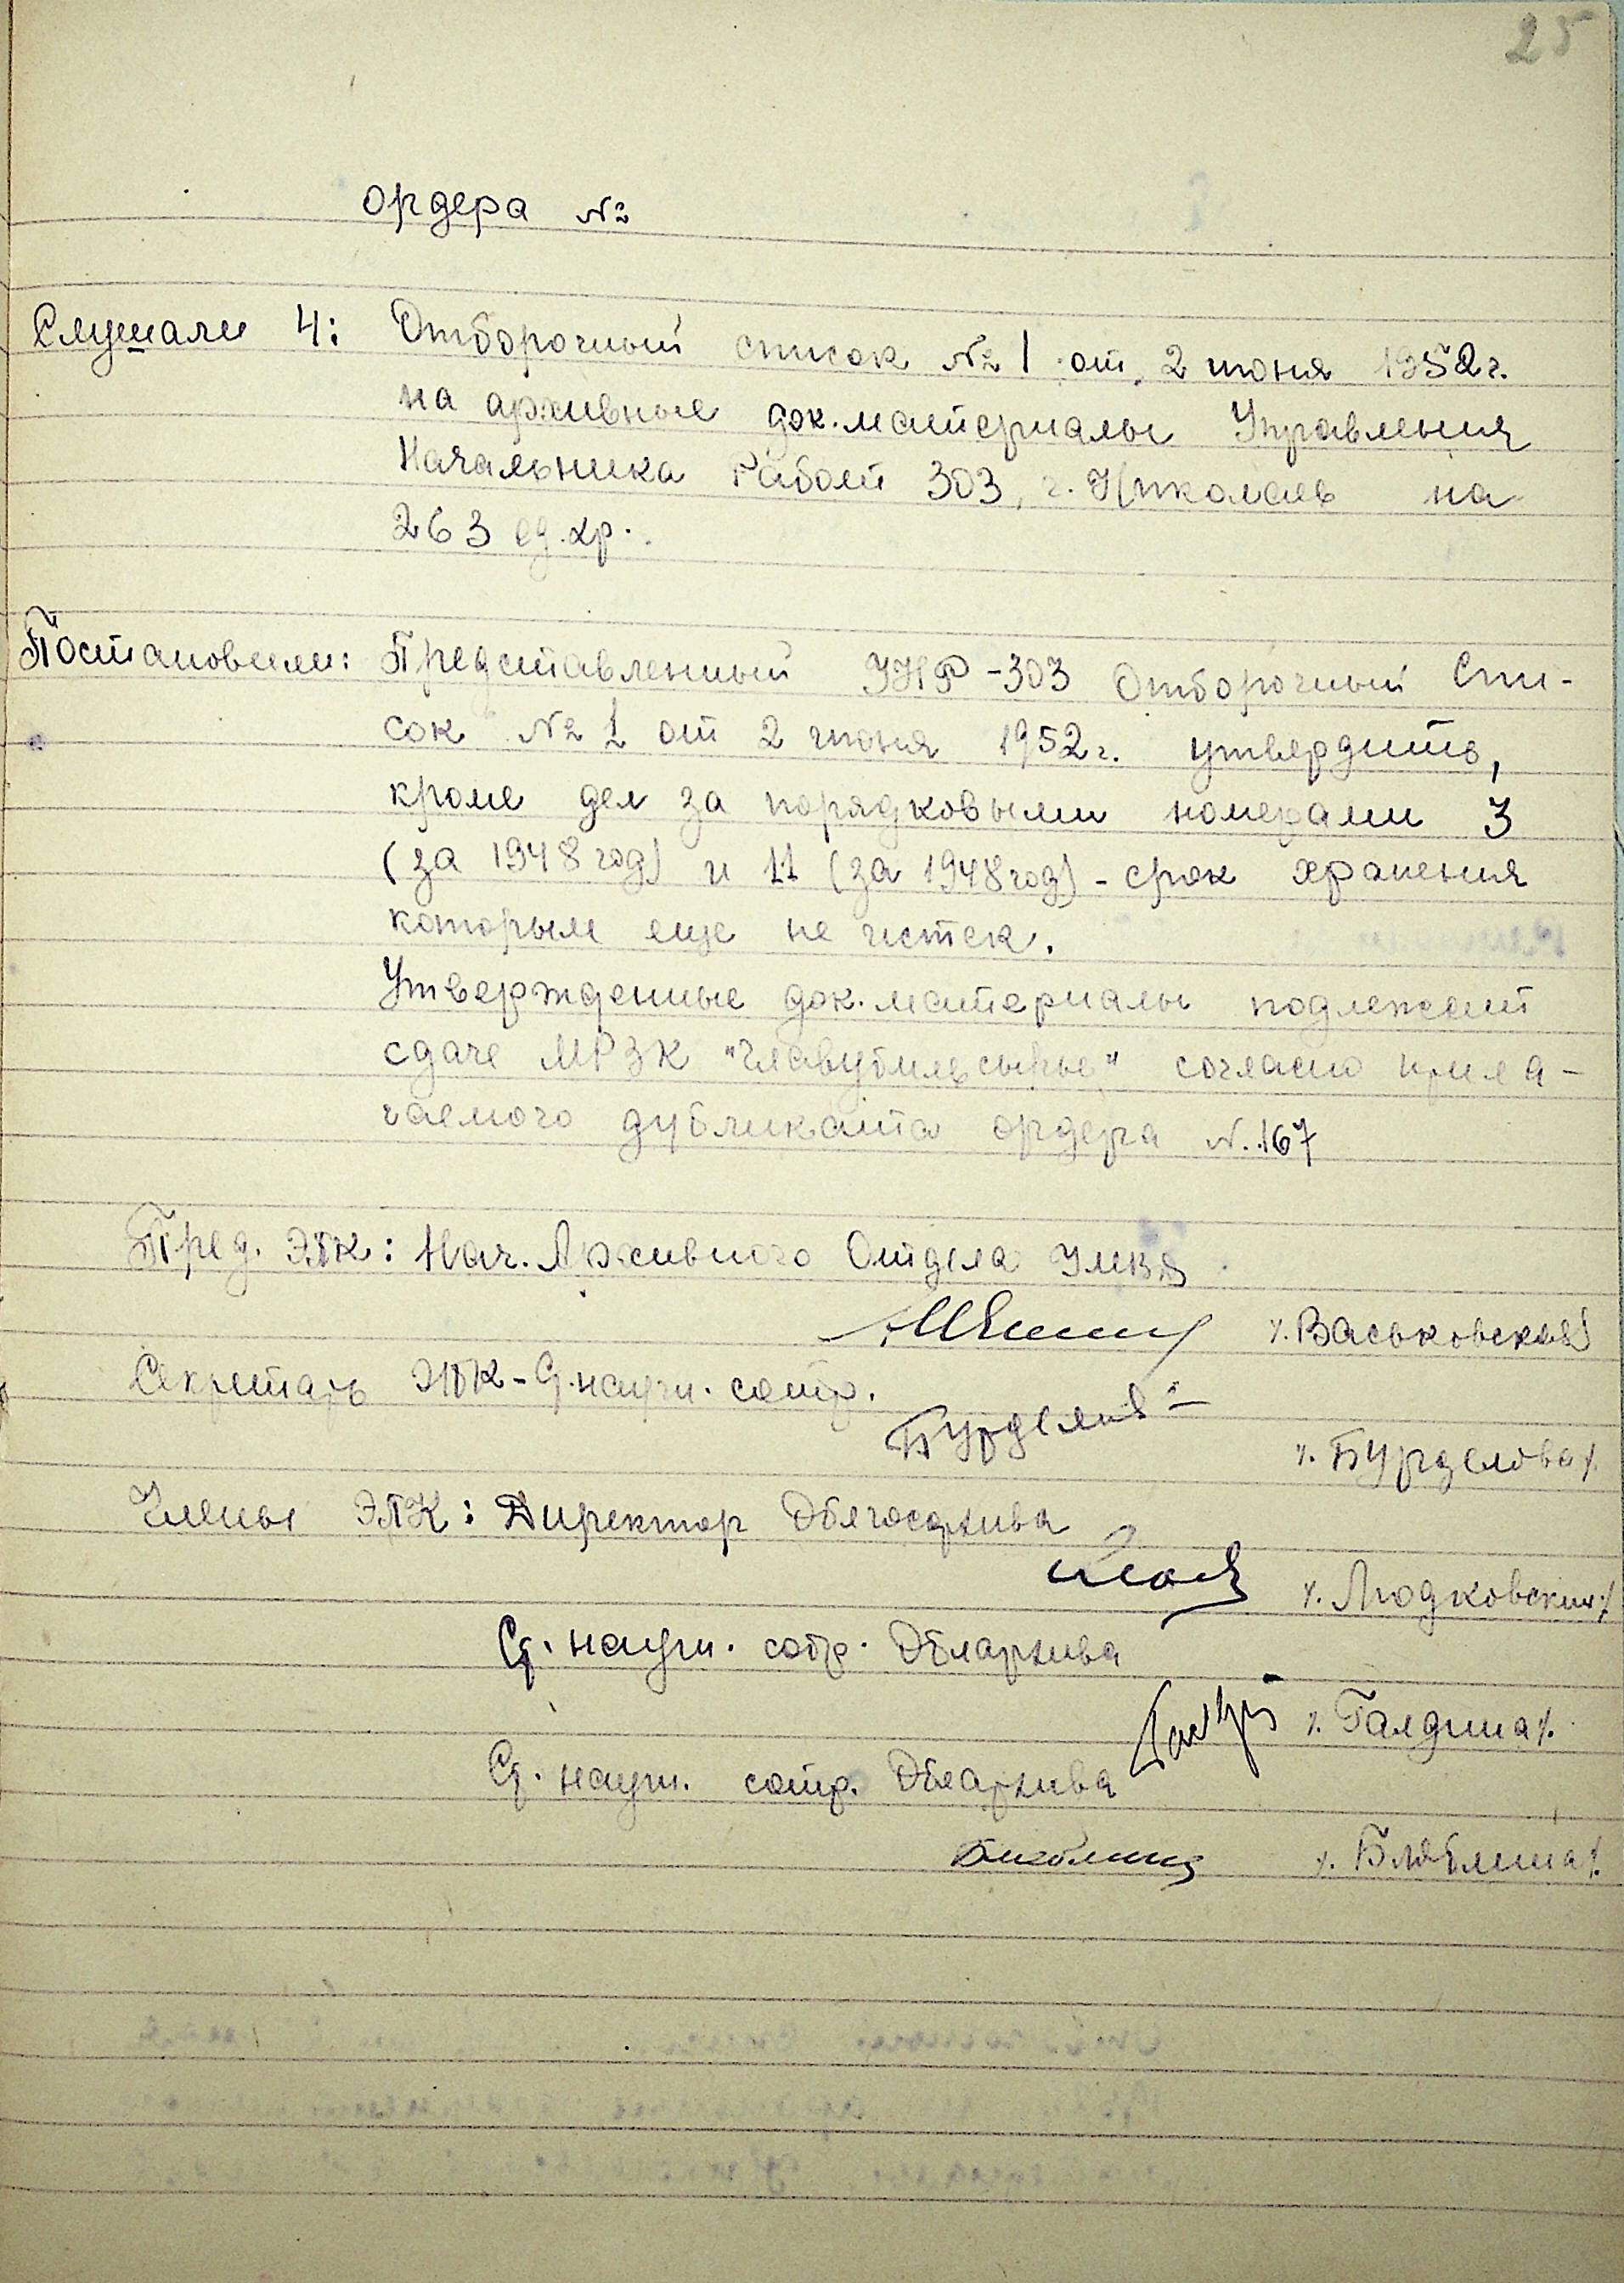 25
ордера №
Слушали 4: Отборочный список № 1 от 2 июня 1952 г.
на архивные док. материалы Управления
Начальника Работ 303, г. Николаев на
263 ед. хр.
Постановили: Представленный УНР-303 Отборочный Спи-
сок № 1 от 2 июня 1952 г. утвердить,
кроме дел за порядковыми номерами 3
(за 1948 год) и 11 (за 1948 год) - срок хранения
которым еще не истек.
Утвержденные док. материалы подлежат
сдаче МРЗК "Главутильсырье" согласно прила-
гаемого дубликата ордера №. 167
Пред. ЭПК: Нач. Архивного Отдела УМВД
/. Васьковская/
Секретарь ЭПК - Ст. научн. сотр.
/. Бурделова /.
Члены ЭПК: Директор Облгосархива
/. Людковский /.
Ст. научн. сотр. Облархива
/. Галдина /.
Ст. научн. сотр. Облархива
/. Бл